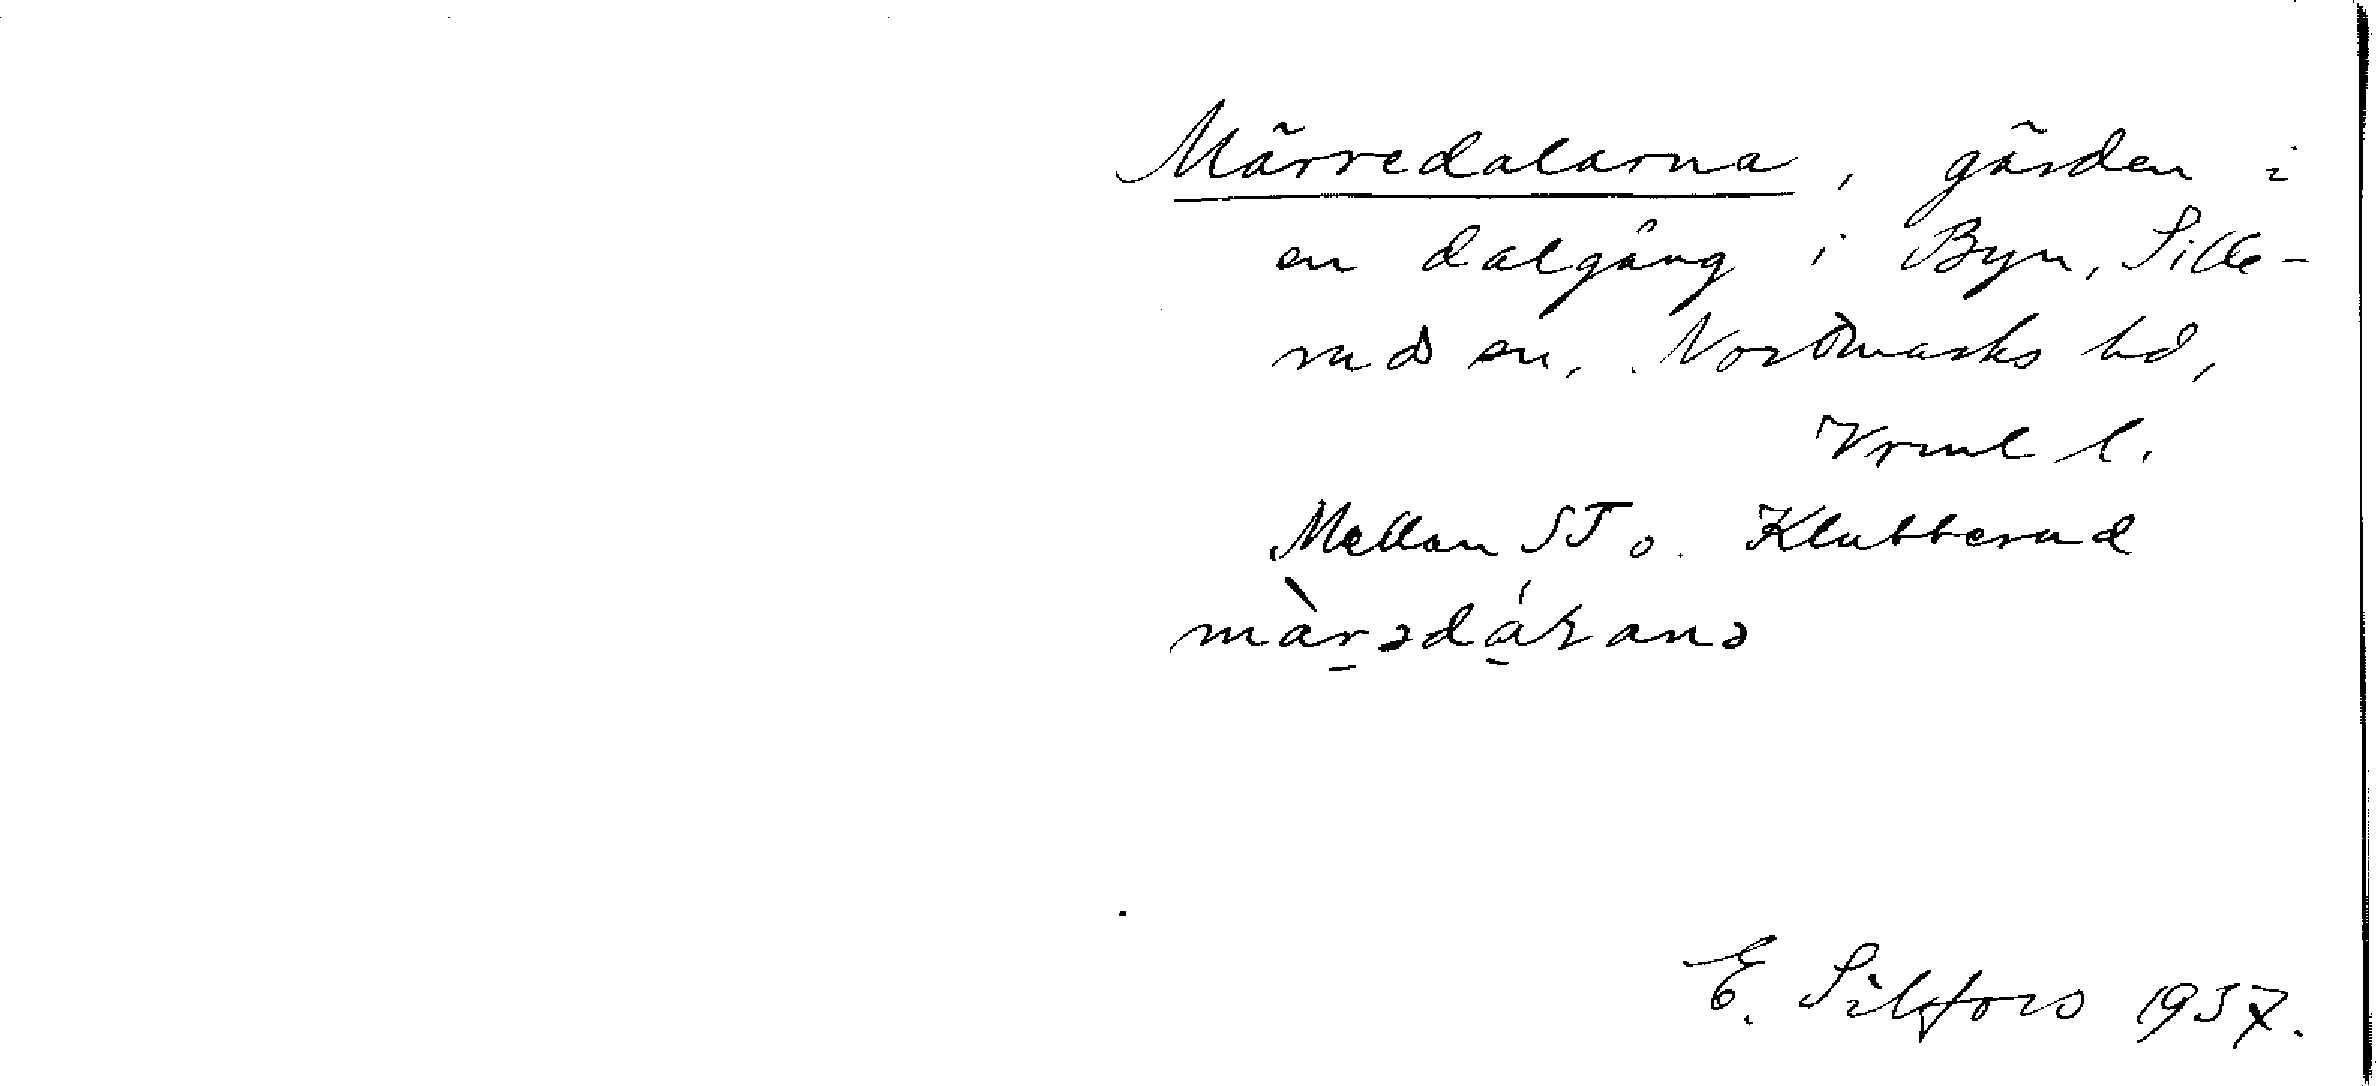 Märredalarna, gärden i
en dalgång i Byn, Sille-
ruds sn, Nordmarks hd,
Vrml l.
Mellan ST o. Klubberud
màrədáꞎanə
E. Silfors 1937.